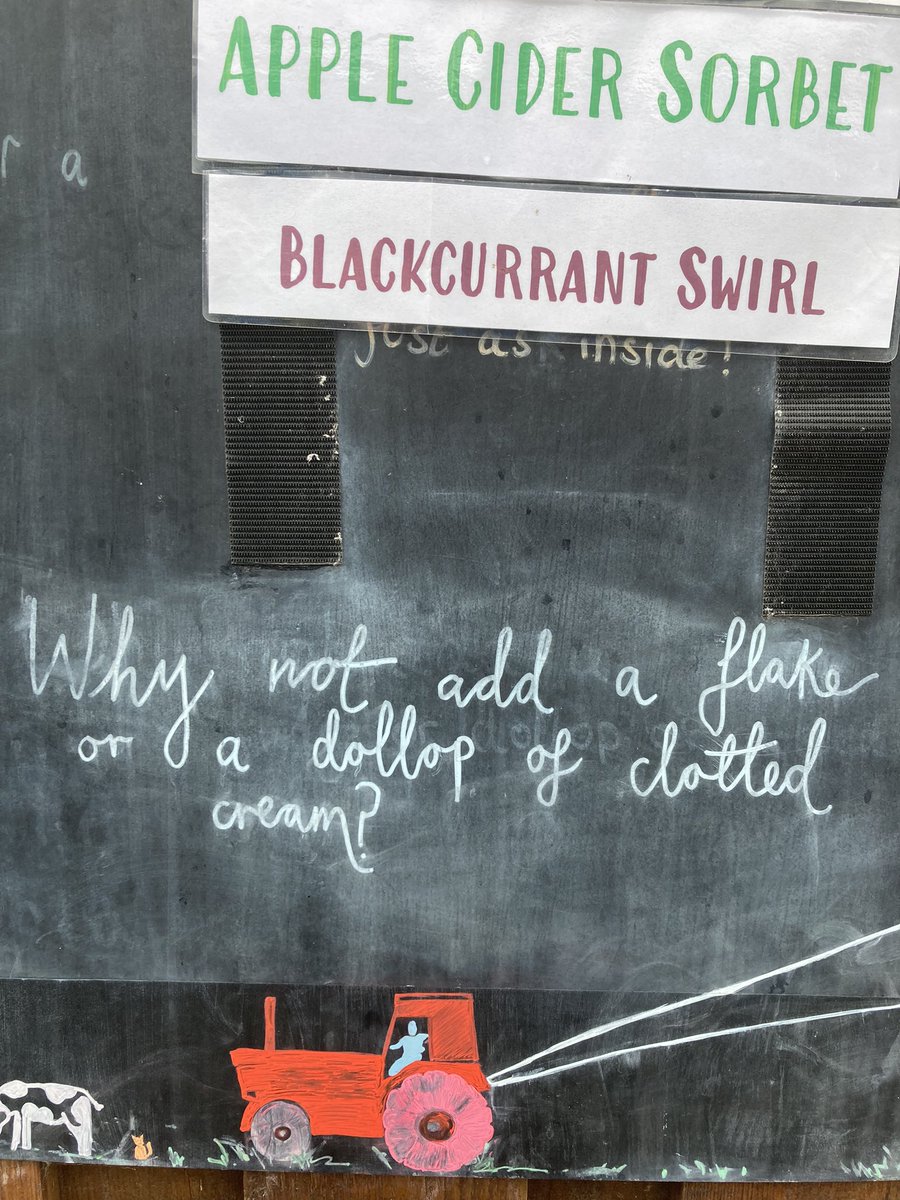 APPLE CIDER SORBET
r a
BLACKCURRANT SWIRL
just as inside!
Why not add a flake
or a dollop of clotted
cream?